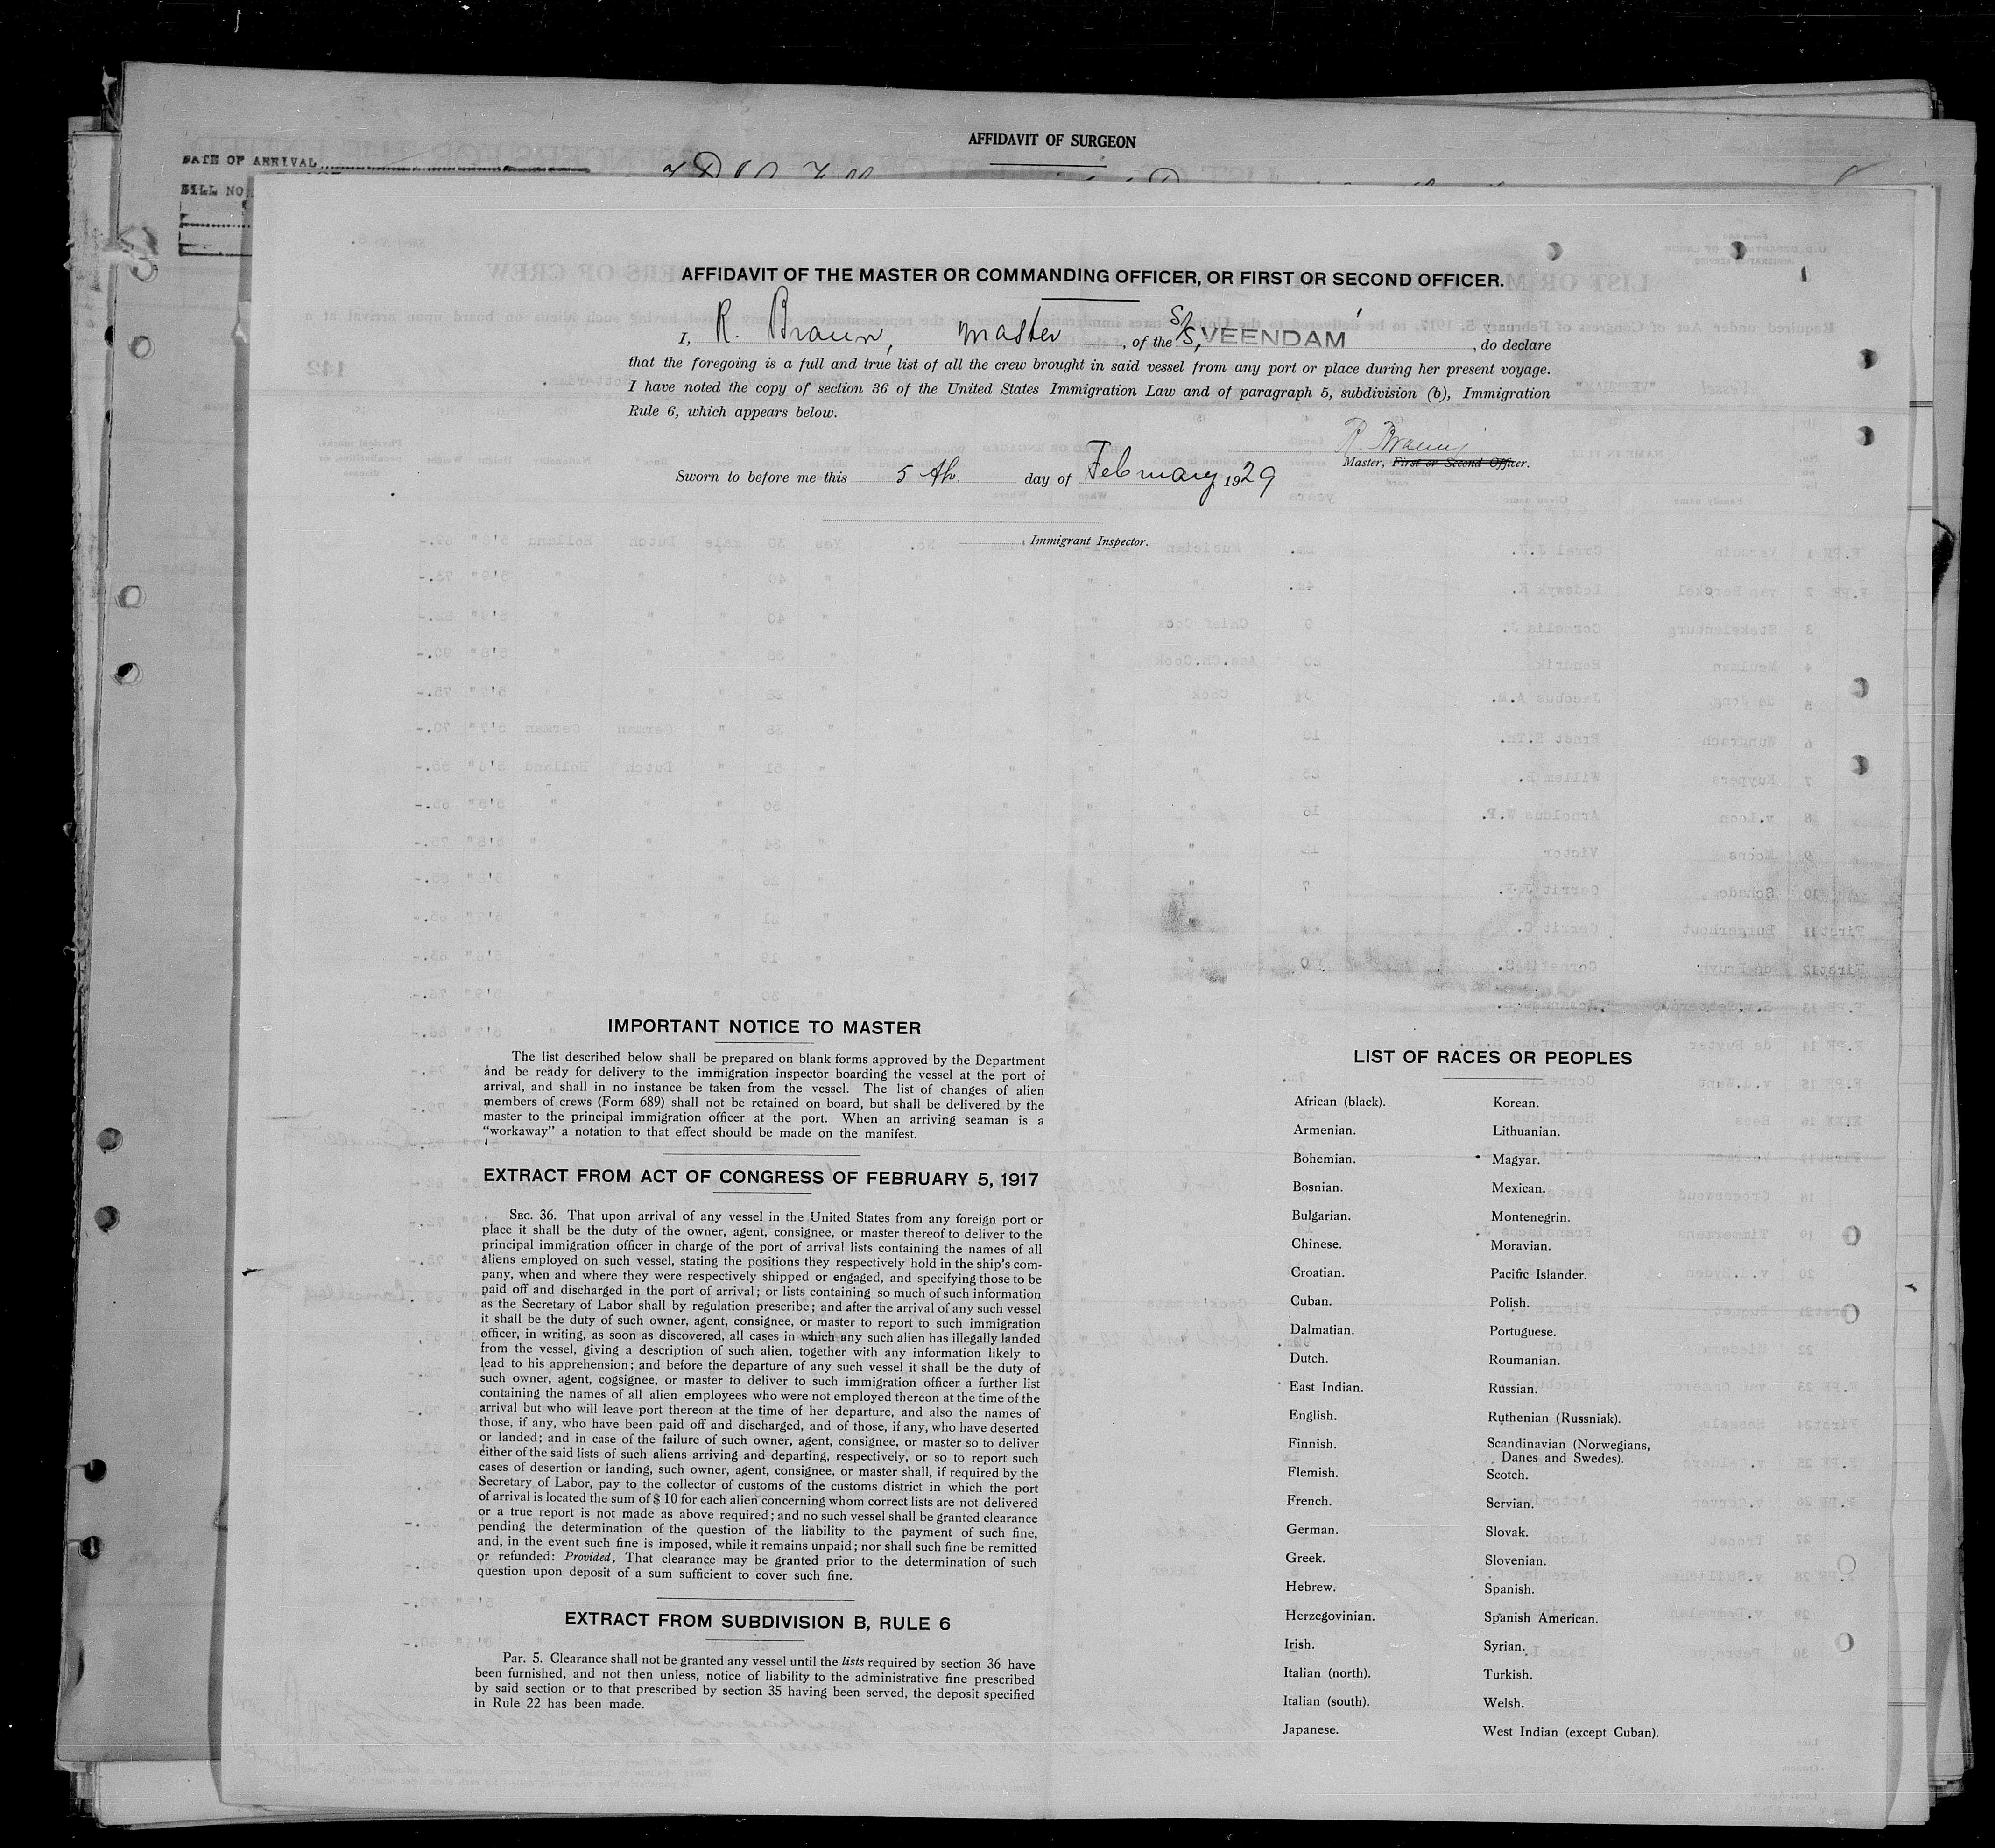 AFFIDAVIT OF SURGEON
DATE OF ARRIVAL
BILL NO.
AFFIDAVIT OF THE MASTER OR COMMANDING OFFICER, OR FIRST OR SECOND OFFICER.
I, R. Braun, master, of the S/S, VEENDAM, do declare
that the foregoing is a full and true list of all the crew brought in said vessel from any port or place during her present voyage.
I have noted the copy of section 36 of the United States Immigration Law and of paragraph 5, subdivision (b), Immigration
Rule 6, which appears below.
R. Braun
Master, First or Second Officer.
Sworn to before me this 5th. day of February, 1929
, Immigrant Inspector.
IMPORTANT NOTICE TO MASTER
The list described below shall be prepared on blank forms approved by the Department
and be ready for delivery to the immigration inspector boarding the vessel at the port of
arrival, and shall in no instance be taken from the vessel. The list of changes of alien
members of crews (Form 689) shall not be retained on board, but shall be delivered by the
master to the principal immigration officer at the port. When an arriving seaman is a
"workaway" a notation to that effect should be made on the manifest.
EXTRACT FROM ACT OF CONGRESS OF FEBRUARY 5, 1917
SEC. 36. That upon arrival of any vessel in the United States from any foreign port or
place it shall be the duty of the owner, agent, consignee, or master thereof to deliver to the
principal immigration officer in charge of the port of arrival lists containing the names of all
aliens employed on such vessel, stating the positions they respectively hold in the ship's com-
pany, when and where they were respectively shipped or engaged, and specifying those to be
paid off and discharged in the port of arrival; or lists containing so much of such information
as the Secretary of Labor shall by regulation prescribe; and after the arrival of any such vessel
it shall be the duty of such owner, agent, consignee, or master to report to such immigration
officer, in writing, as soon as discovered, all cases in which any such alien has illegally landed
from the vessel, giving a description of such alien, together with any information likely to
lead to his apprehension; and before the departure of any such vessel it shall be the duty of
such owner, agent, cogsignee, or master to deliver to such immigration officer a further list
containing the names of all alien employees who were not employed thereon at the time of the
arrival but who will leave port thereon at the time of her departure, and also the names of
those, if any, who have been paid off and discharged, and of those, if any, who have deserted
or landed; and in case of the failure of such owner, agent, consignee, or master so to deliver
either of the said lists of such aliens arriving and departing, respectively, or so to report such
cases of desertion or landing, such owner, agent, consignee, or master shall, if required by the
Secretary of Labor, pay to the collector of customs of the customs district in which the port
of arrival is located the sum of $ 10 for each alien concerning whom correct lists are not delivered
or a true report is not made as above required; and no such vessel shall be granted clearance
pending the determination of the question of the liability to the payment of such fine,
and, in the event such fine is imposed, while it remains unpaid; nor shall such fine be remitted
or refunded: Provided, That clearance may be granted prior to the determination of such
question upon deposit of a sum sufficient to cover such fine.
EXTRACT FROM SUBDIVISION B, RULE 6
Par. 5. Clearance shall not be granted any vessel until the lists required by section 36 have
been furnished, and not then unless, notice of liability to the administrative fine prescribed
by said section or to that prescribed by section 35 having been served, the deposit specified
in Rule 22 has been made.
LIST OF RACES OR PEOPLES
African (black).
Armenian.
Bohemian.
Bosnian.
Bulgarian.
Chinese.
Croatian.
Cuban.
Dalmatian.
Dutch.
East Indian.
English.
Finnish.
Flemish.
French.
German.
Greek.
Hebrew.
Herzegovinian.
Irish.
Italian (north).
Italian (south).
Japanese.
Korean.
Lithuanian.
Magyar.
Mexican.
Montenegrin.
Moravian.
Pacific Islander.
Polish.
Portuguese.
Roumanian.
Russian.
Ruthenian (Russniak).
Scandinavian (Norwegians,
Danes and Swedes).
Scotch.
Servian.
Slovak.
Slovenian.
Spanish.
Spanish American.
Syrian.
Turkish.
Welsh.
West Indian (except Cuban).